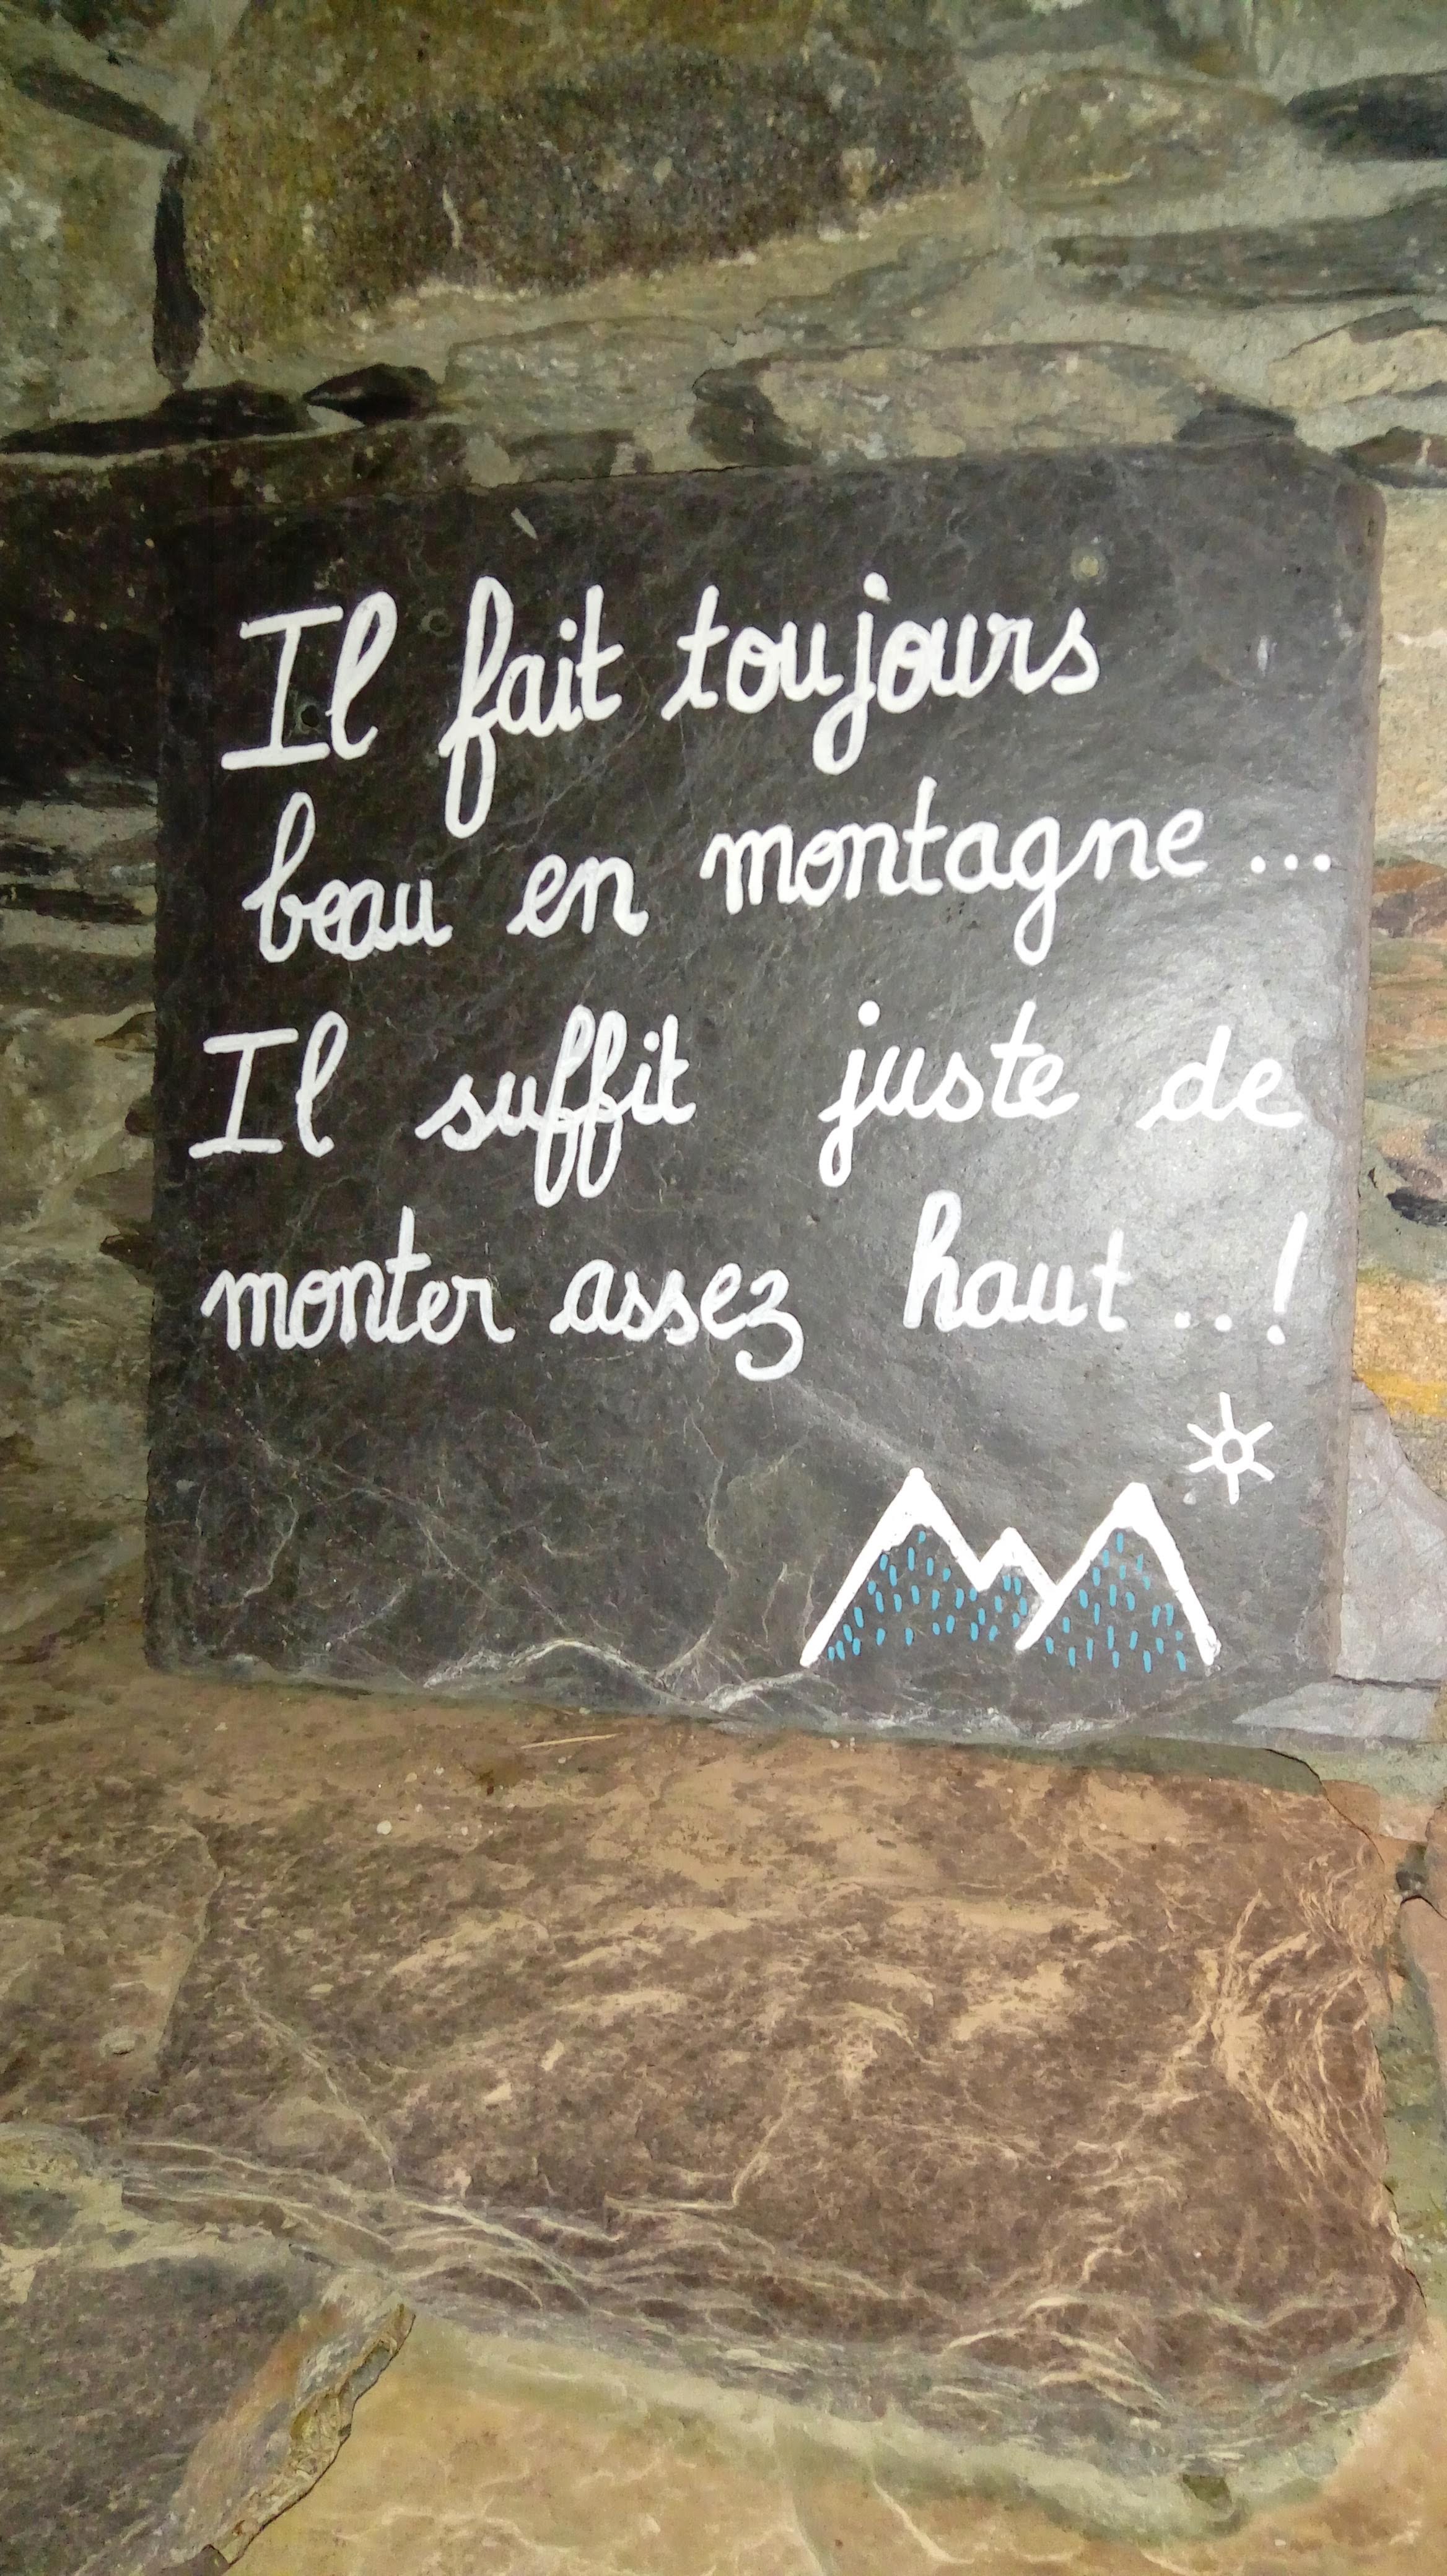 Il fait toujours
beau en montagne...
Il suffit juste de
monter assez haut..!